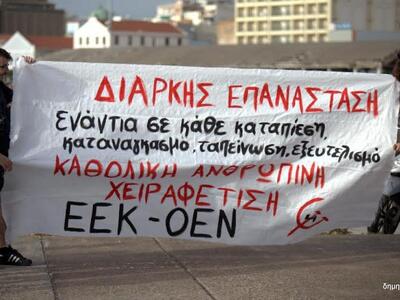 ΔΙΑΡΚΗΣ ΕΠΑΝΑΣΤΑΣΗ
ενάντια σε κάθε καταπίεση,
καταναγκασμό, ταπείνωση, εξευτελισμό
ΚΑΘΟΛΙΚΗ ΑΝΘΡΩΠΙΝΗ
ΧΕΙΡΑΦΕΤΙΣΗ
ΕΕΚ-ΟΕΝ
δημη